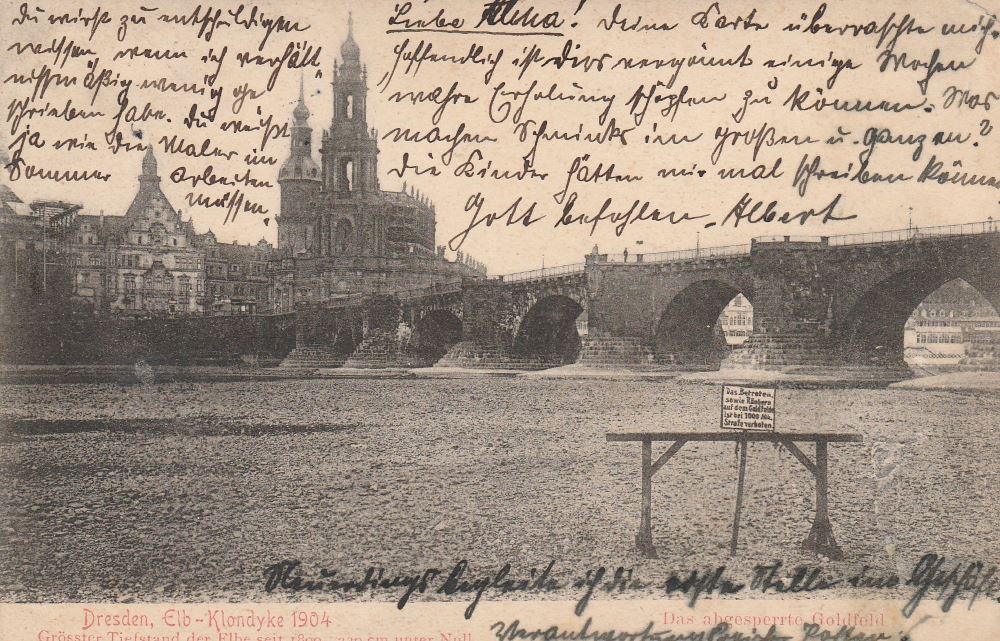 Liebe Alma! Deine Karte überraschte mich.
Hoffendlich ist dirs vergönnt einige Wochen
wahre Erholung schöpfen zu können. Was
machen Schmincks im großen u. ganzen?
die Kinder hätten mir mal schreiben können
Gott befohlen – Albert
du wirst zu entschuldigen
wissen, wenn ich verhält
nissmäßig wenig ge
schrieben habe. du weißt
ja wie die Maler im
Sommer arbeiten
müssen.
Das Betreten,
sowie Räubern
auf dem Goldfelde
ist bei 1000 Mk.
Strafe verboten.
Neuerdings begleite ich die erste Stelle im Geschäft
Dresden, Elb-Klondyke 1904
Das abgesperrte Goldfeld
Grösster Tiefstand der Elbe seit cm unter Null